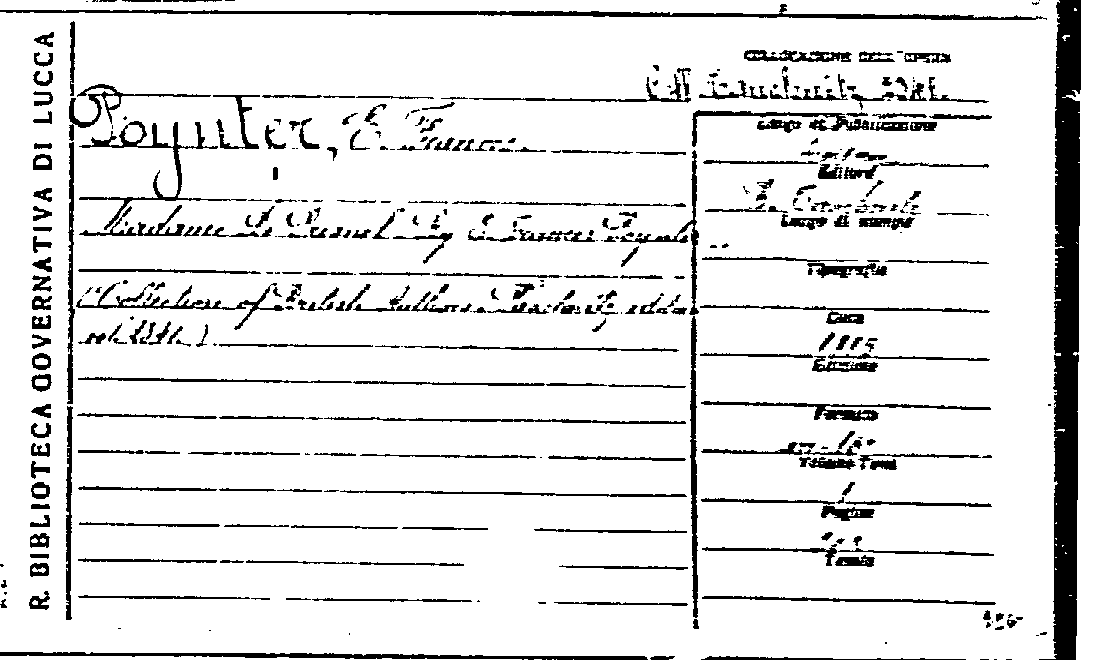 R. BIBLIOTECA GOVERNATIVA DI LUCCA
COLLOCAZIONE DELL'OPERA
Coll. Tauchnitz, 2341.
Poynter, E. Frances.
Madame de Presnel By E. Frances Poynter
(Collection of British Authors Tauchnitz edition
vol: 2341.)
Luogo di Pubblicazione
Editore
B. Tauchnitz
Luogo di stampa
Tipografia
Data
1885
Edizione
Formato
in-16°
Volume Tomi
1
Pagine
Tavole